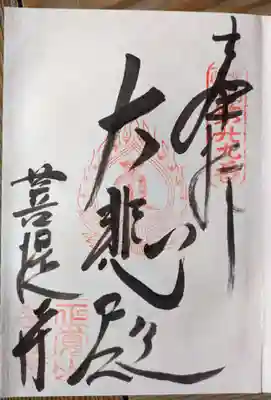 奉拝
大悲殿
菩提寺